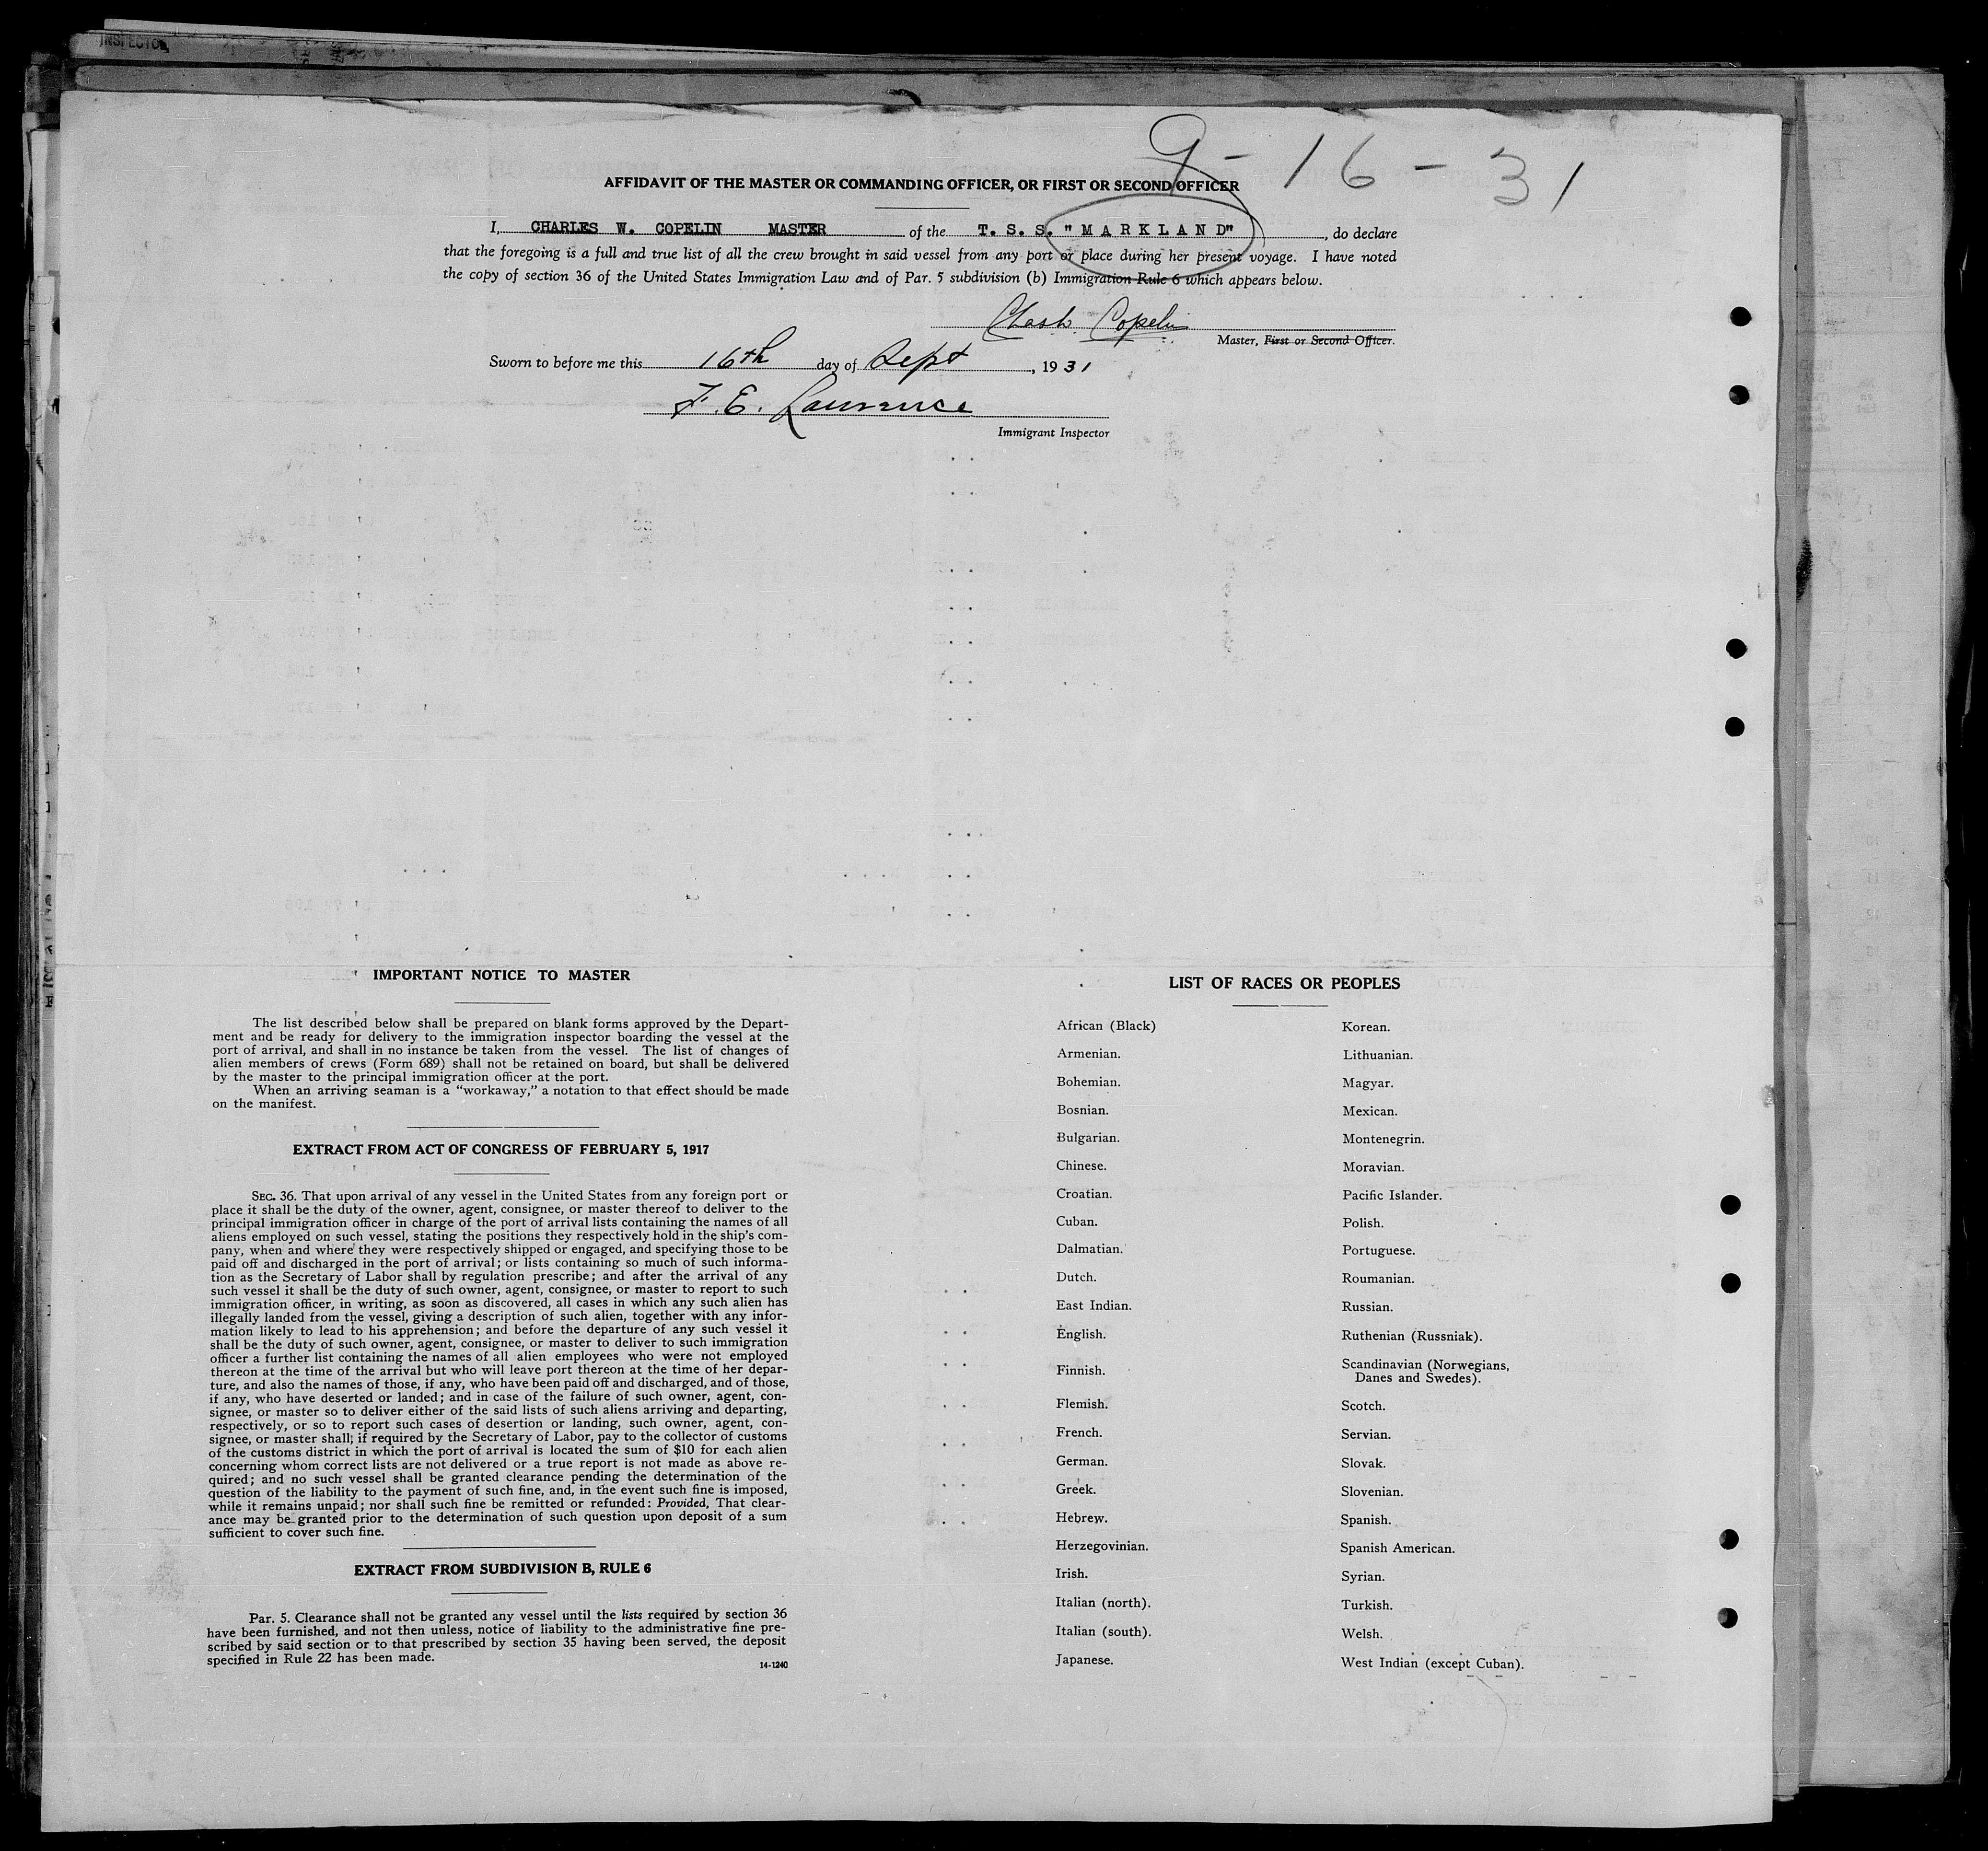 INSPECTOR
9-16-31
AFFIDAVIT OF THE MASTER OR COMMANDING OFFICER, OR FIRST OR SECOND OFFICER
I, CHARLES W. COPELIN MASTER of the T. S. S. "MARKLAND", do declare
that the foregoing is a full and true list of all the crew brought in said vessel from any port or place during her present voyage. I have noted
the copy of section 36 of the United States Immigration Law and of Par. 5 subdivision (b) Immigration Rule 6 which appears below.
Chas W. Copelin
Master, First or Second Officer.
Sworn to before me this 16th day of Sept, 1931
F. E. Laurence
Immigrant Inspector
IMPORTANT NOTICE TO MASTER
The list described below shall be prepared on blank forms approved by the Depart-
ment and be ready for delivery to the immigration inspector boarding the vessel at the
port of arrival, and shall in no instance be taken from the vessel. The list of changes of
alien members of crews (Form 689) shall not be retained on board, but shall be delivered
by the master to the principal immigration officer at the port.
When an arriving seaman is a "workaway," a notation to that effect should be made
on the manifest.
EXTRACT FROM ACT OF CONGRESS OF FEBRUARY 5, 1917
SEC. 36. That upon arrival of any vessel in the United States from any foreign port or
place it shall be the duty of the owner, agent, consignee, or master thereof to deliver to the
principal immigration officer in charge of the port of arrival lists containing the names of all
aliens employed on such vessel, stating the positions they respectively hold in the ship's com-
pany, when and where they were respectively shipped or engaged, and specifying those to be
paid off and discharged in the port of arrival; or lists containing so much of such informa-
tion as the Secretary of Labor shall by regulation prescribe; and after the arrival of any
such vessel it shall be the duty of such owner, agent, consignee, or master to report to such
immigration officer, in writing, as soon as discovered, all cases in which any such alien has
illegally landed from the vessel, giving a description of such alien, together with any infor-
mation likely to lead to his apprehension; and before the departure of any such vessel it
shall be the duty of such owner, agent, consignee, or master to deliver to such immigration
officer a further list containing the names of all alien employees who were not employed
thereon at the time of the arrival but who will leave port thereon at the time of her depar-
ture, and also the names of those, if any, who have been paid off and discharged, and of those,
if any, who have deserted or landed; and in case of the failure of such owner, agent, con-
signee, or master so to deliver either of the said lists of such aliens arriving and departing,
respectively, or so to report such cases of desertion or landing, such owner, agent, con-
signee, or master shall, if required by the Secretary of Labor, pay to the collector of customs
of the customs district in which the port of arrival is located the sum of $10 for each alien
concerning whom correct lists are not delivered or a true report is not made as above re-
quired; and no such vessel shall be granted clearance pending the determination of the
question of the liability to the payment of such fine, and, in the event such fine is imposed,
while it remains unpaid; nor shall such fine be remitted or refunded: Provided, That clear-
ance may be granted prior to the determination of such question upon deposit of a sum
sufficient to cover such fine.
EXTRACT FROM SUBDIVISION B, RULE 6
Par. 5. Clearance shall not be granted any vessel until the lists required by section 36
have been furnished, and not then unless, notice of liability to the administrative fine pre-
scribed by said section or to that prescribed by section 35 having been served, the deposit
specified in Rule 22 has been made.
14-1240
LIST OF RACES OR PEOPLES
African (Black)
Armenian.
Bohemian.
Bosnian.
Bulgarian.
Chinese.
Croatian.
Cuban.
Dalmatian.
Dutch.
East Indian.
English.
Finnish.
Flemish.
French.
German.
Greek.
Hebrew.
Herzegovinian.
Irish.
Italian (north).
Italian (south).
Japanese.
Korean.
Lithuanian.
Magyar.
Mexican.
Montenegrin.
Moravian.
Pacific Islander.
Polish.
Portuguese.
Roumanian.
Russian.
Ruthenian (Russniak).
Scandinavian (Norwegians,
Danes and Swedes).
Scotch.
Servian.
Slovak.
Slovenian.
Spanish.
Spanish American.
Syrian.
Turkish.
Welsh.
West Indian (except Cuban).